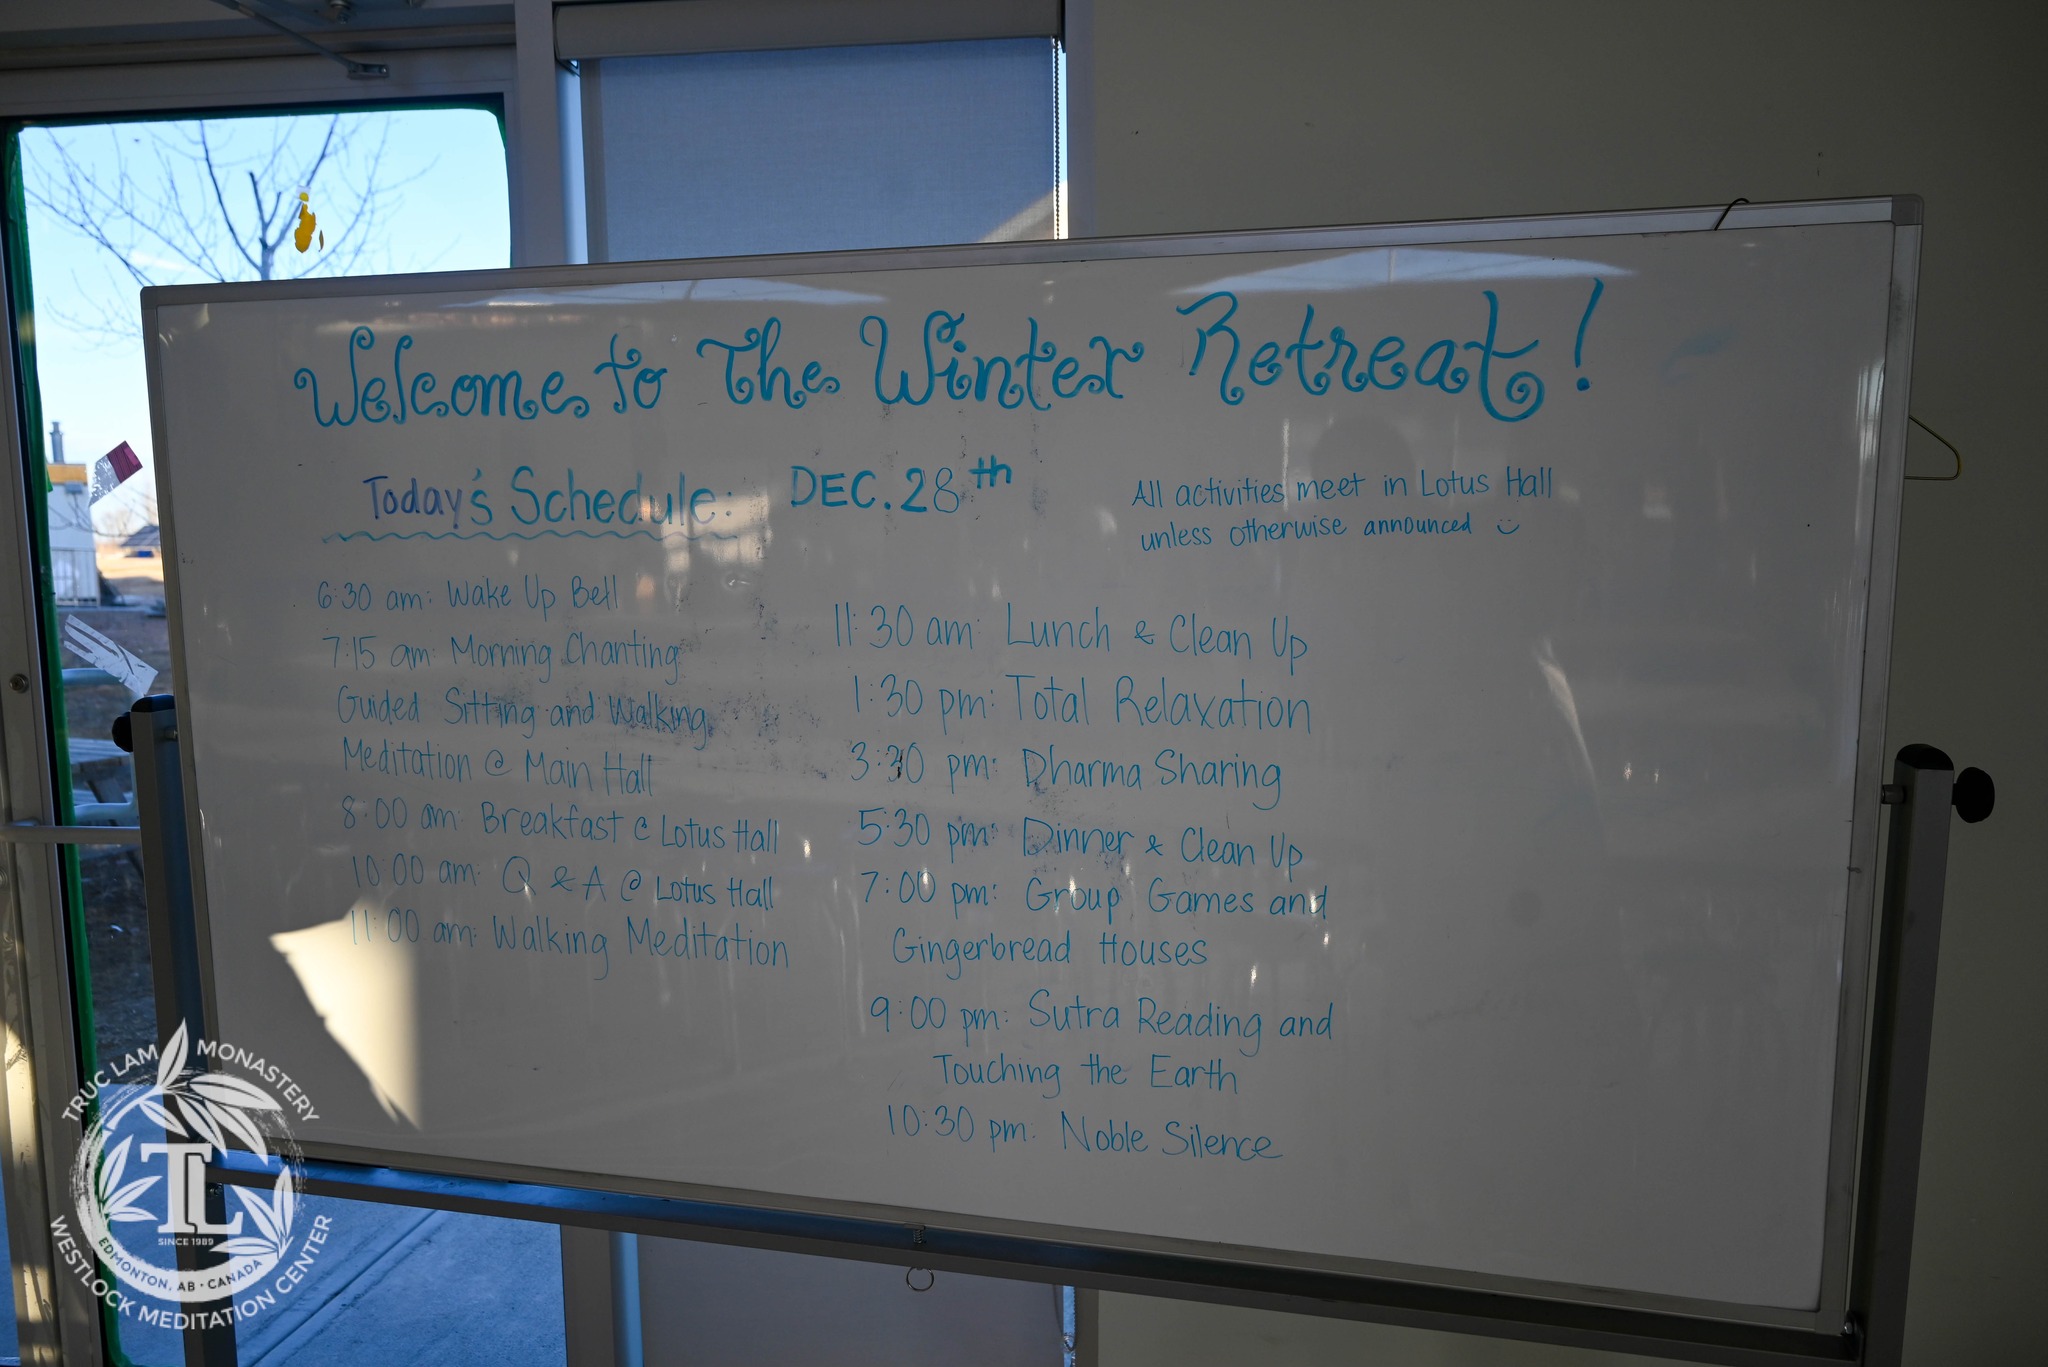 Welcome to The Winter Retreat!
Today's Schedule: DEC. 28th
All activities meet in Lotus Hall
unless otherwise announced
6:30 am: Wake Up Bell
7:15 am: Morning Chanting
Guided Sitting and Walking
Meditation @ Main Hall
8:00 am: Breakfast @ Lotus Hall
10:00 am: Q & A @ Lotus Hall
11:00 am: Walking Meditation
11:30 am: Lunch & Clean Up
1:30 pm: Total Relaxation
3:30 pm: Dharma Sharing
5:30 pm: Dinner & Clean Up
7:00 pm: Group Games and
Gingerbread Houses
9:00 pm: Sutra Reading and
Touching the Earth
10:30 pm: Noble Silence
TRUC LAM MONASTERY
TL
SINCE 1989
EDMONTON, AB • CANADA
WESTLOCK MEDITATION CENTER